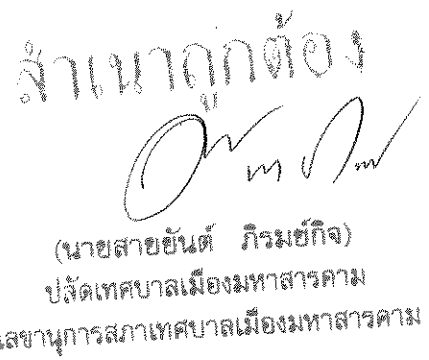 สำเนาถูกต้อง
(นายสายยันต์ ภิรมย์กิจ)
ปลัดเทศบาลเมืองมหาสารคาม
เลขานุการสภาเทศบาลเมืองมหาสารคาม